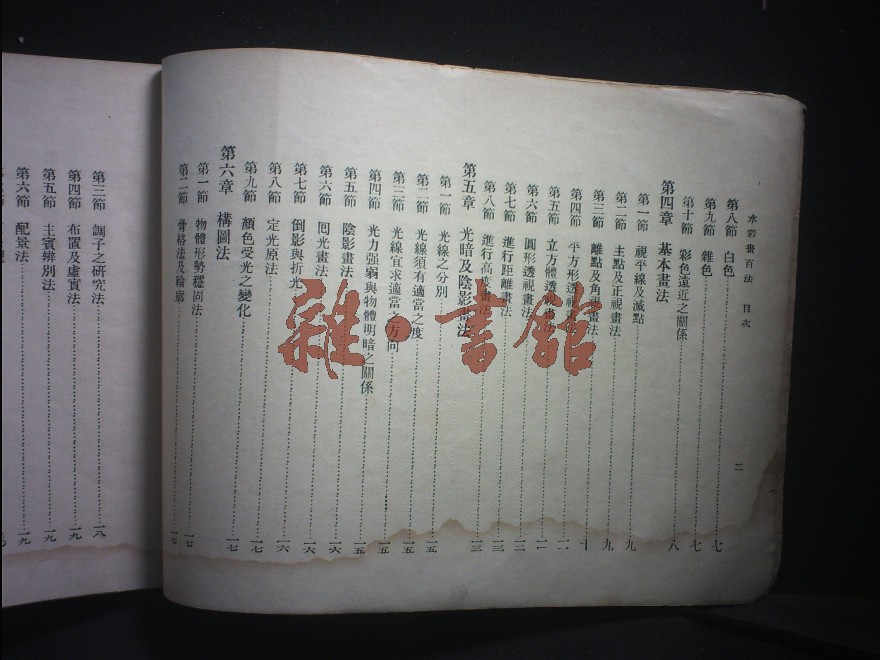 水彩畫百法 目次
二
第八節 白色 七
第九節 雜色 七
第十節 彩色遠近之關係 八
第四章 基本畫法
第一節 視平線及滅點 九
第二節 主點及正視畫法 九
第三節 離點及角視畫法 十
第四節 平方形透視畫法 一一
第五節 立方體透視畫法 一一
第六節 圓形透視畫法 一二
第七節 進行距離畫法 一三
第八節 進行高度畫法 一三
第五章 光暗及陰影畫法
第一節 光線之分別 一五
第二節 光線須有適當之度 一五
第三節 光線宜求適當之方向 一五
第四節 光力强弱與物體明暗之關係 一五
第五節 陰影畫法 一五
第六節 回光畫法 一六
第七節 倒影與折光 一六
第八節 定光原法 一六
第九節 顏色受光之變化 一七
第六章 構圖法 一七
第一節 物體形勢穩固法 一七
第二節 骨格法及輪廓 一七
第三節 調子之研究法 一八
第四節 布置及虛實法 一九
第五節 主賓辨別法 一九
第六節 配景法 一九
雜·書館